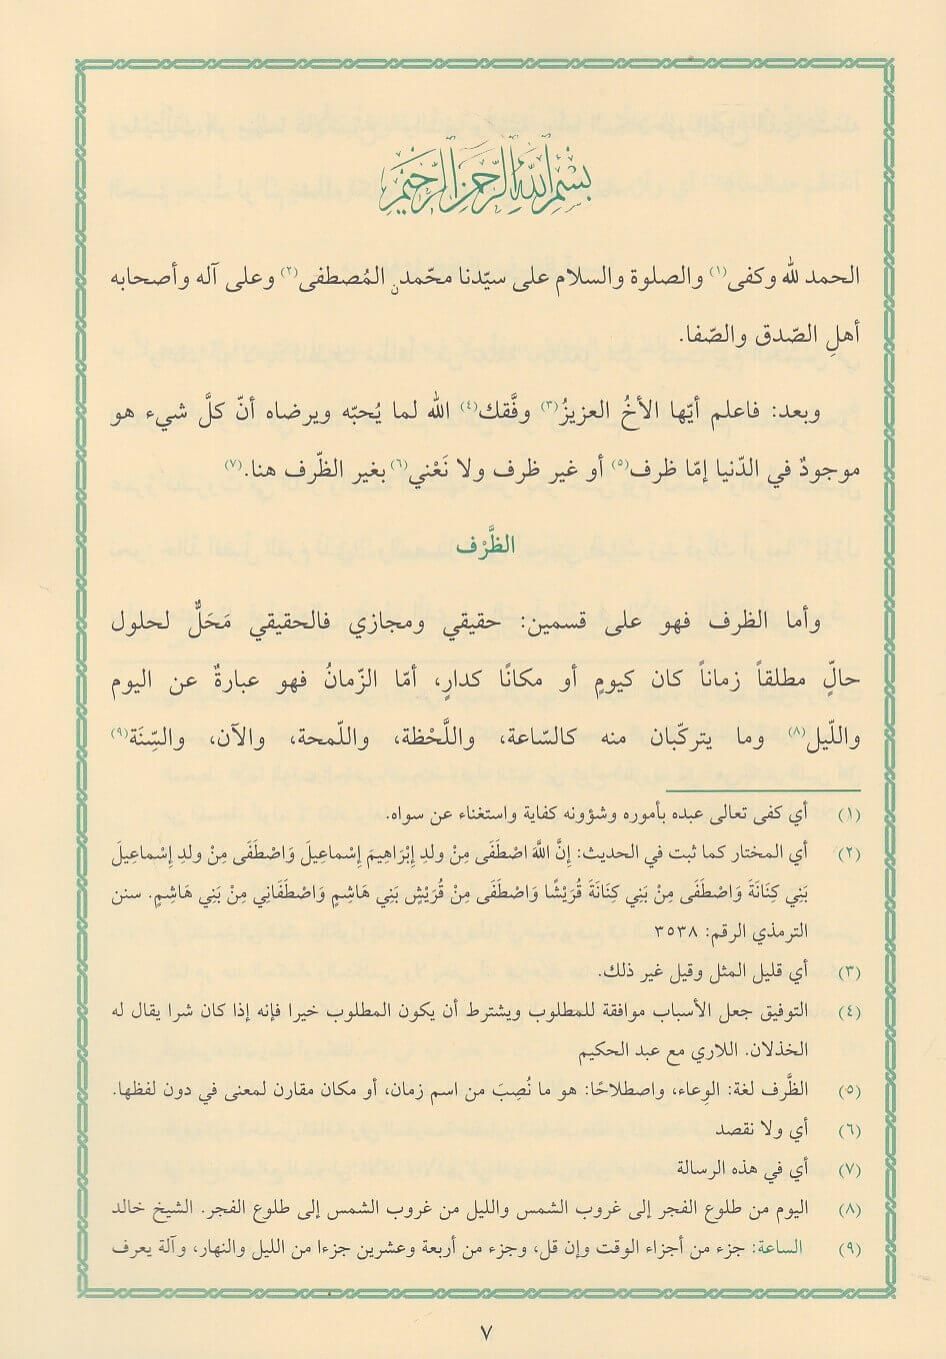 بِسْمِ اللَّهِ الرَّحْمَنِ الرَّحِيمِ
الحمد لله وكفى(١) والصلوة والسلام على سيّدنا محمدنِ المُصطفى(٢) وعلى آله وأصحابه
أهلِ الصّدق والصّفا.
وبعد: فاعلم أيّها الأخُ العزيزُ(٣) وفَّقك(٤) الله لما يُحبّه ويرضاه أنّ كلَّ شيء هو
موجودٌ في الدّنيا إمّا ظرف(٥) أو غير ظرف ولا نَعْني(٦) بغير الظّرف هنا.(٧)
الظَّرْف
وأما الظرف فهو على قسمين: حقيقي ومجازي فالحقيقي مَحَلٌّ لحلول
حالٍّ مطلقاً زماناً كان كيومٍ أو مكانًا كدارٍ، أمّا الزّمانُ فهو عبارةٌ عن اليوم
واللّيل(٨) وما يتركّبان منه كالسّاعة، واللَّحْظة، واللّمحة، والآن، والسِّنَة(٩)
(١) أي كفى تعالى عبده بأموره وشؤونه كفاية واستغناء عن سواه.
(٢) أي المختار كما ثبت في الحديث: إِنَّ اللَّهَ اصْطَفَى مِنْ ولدِ إِبْرَاهِيمَ إِسْماعِيلَ وَاصْطَفَى مِنْ ولدِ إِسْماعِيلَ
بَنِي كِنَانَةَ وَاصْطَفَى مِنْ بَنِي كِنَانَةَ قُرَيْشًا وَاصْطَفَى مِنْ قُرَيْشٍ بَنِي هَاشِمٍ وَاصْطَفَانِي مِنْ بَنِي هَاشِمٍ. سنن
الترمذي الرقم: ٣٥٣٨
(٣) أي قليل المثل وقيل غير ذلك.
(٤) التوفيق جعل الأسباب موافقة للمطلوب ويشترط أن يكون المطلوب خيرا فإنه إذا كان شرا يقال له
الخذلان. اللاري مع عبد الحكيم
(٥) الظَّرف لغة: الوِعاء، واصطلاحًا: هو ما نُصِبَ من اسم زمان، أو مكان مقارن لمعنى في دون لفظها.
(٦) أي ولا نقصد
(٧) أي في هذه الرسالة
(٨) اليوم من طلوع الفجر إلى غروب الشمس والليل من غروب الشمس إلى طلوع الفجر. الشيخ خالد
(٩) الساعة: جزء من أجزاء الوقت وإن قل، وجزء من أربعة وعشرين جزءا من الليل والنهار، وآلة يعرف
٧